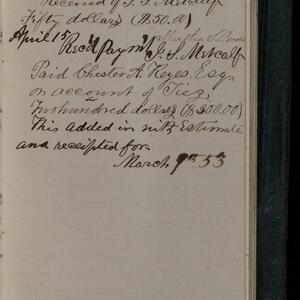 Received of T. F. Metcalf
Fifty dollars ($50.00)
April 15 Rec'd pay on
T. S. Metcalf
Paid Chester A. Keyes, Esq.
on account of Ties,
Two hundred dollars ($200.00)
This added in Estimate
and receipted for.
March 9th 53